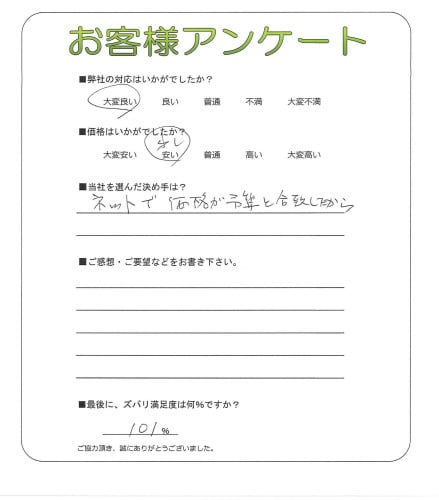 お客様アンケート
■弊社の対応はいかがでしたか?
大変良い 良い 普通 不満 大変不満
■価格はいかがでしたか?
少し
大変安い 安い 普通 高い 大変高い
■当社を選んだ決め手は?
ネットで価格が予算と合致したから
■ご感想・ご要望などをお書き下さい。
■最後に、ズバリ満足度は何%ですか?
101%
ご協力頂き、誠にありがとうございました。